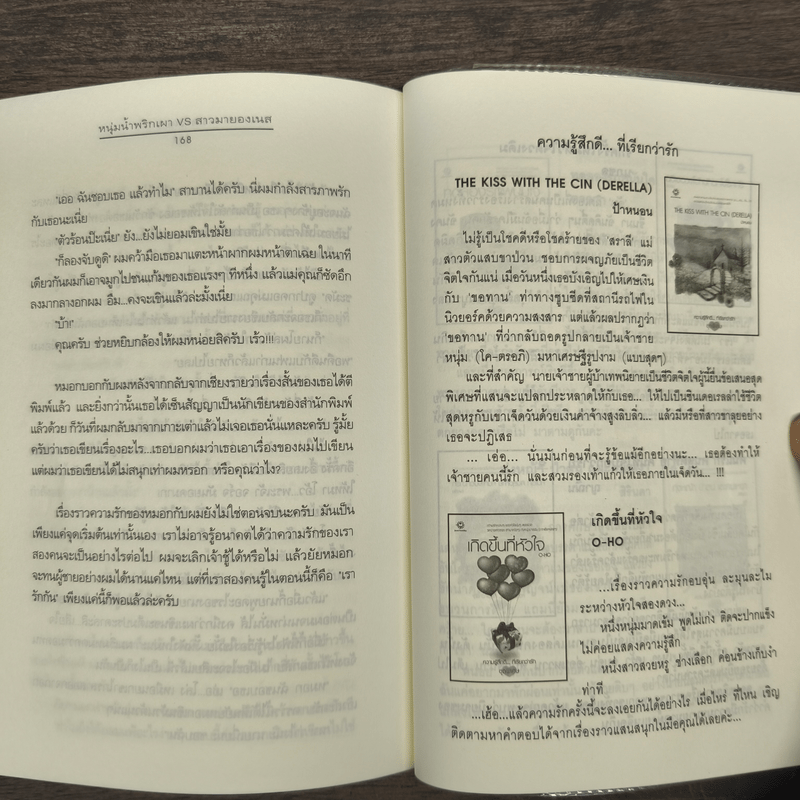 หนุ่มน้ำพริกเผา VS สาวมายองเนส
168
"เออ ฉันชอบเธอ แล้วทำไม" สาบานได้ครับ นี่ผมกำลังสารภาพรัก
กับเธอนะเนี่ย
"ตัวร้อนป๊ะเนี่ย" ยัง...ยังไม่ยอมเขินใช่มั้ย
"ก็ลองจับดูดิ" ผมคว้ามือเธอมาแตะหน้าผากผมหน้าตาเฉย ในนาที
เดียวกันผมก็เอาจมูกไปชนแก้มของเธอแรงๆ ทีหนึ่ง แล้วแม่คุณก็ซัดอึก
ลงมากลางอกผม อืม...คงจะเขินแล้วล่ะมั้งเนี่ย
"บ้า!"
คุณครับ ช่วยหยิบกล้องให้ผมหน่อยสิครับ เร็ว!!!
หมอกบอกกับผมหลังจากกลับจากเชียงรายว่าเรื่องสั้นของเธอได้ตี
พิมพ์แล้ว และยิ่งกว่านั้นเธอได้เซ็นสัญญาเป็นนักเขียนของสำนักพิมพ์
แล้วด้วย ก็วันที่ผมกลับมาจากเกาะเต่าแล้วไม่เจอเธอนั่นแหละครับ รู้มั้ย
ครับว่าเธอเขียนเรื่องอะไร...เธอบอกผมว่าเธอเอาเรื่องของผมไปเขียน
แต่ผมว่าเธอเขียนได้ไม่สนุกเท่าผมหรอก หรือคุณว่าไง?
เรื่องราวความรักของหมอกกับผมยังไม่ใช่ตอนจบนะครับ มันเป็น
เพียงแค่จุดเริ่มต้นเท่านั้นเอง เราไม่อาจรู้อนาคตได้ว่าความรักของเรา
สองคนจะเป็นอย่างไรต่อไป ผมจะเลิกเจ้าชู้ได้หรือไม่ แล้วยัยหมอก
จะทนผู้ชายอย่างผมได้นานแค่ไหน แต่ที่เราสองคนรู้ในตอนนี้ก็คือ "เรา
รักกัน" เพียงแค่นี้ก็พอแล้วล่ะครับ
ความรู้สึกดี... ที่เรียกว่ารัก
THE KISS WITH THE CIN (DERELLA)
ป้าหนอน
THE KISS WITH THE CIN (DERELLA)
ความรู้สึกดี... ที่เรียกว่ารัก
ไม่รู้เป็นโชคดีหรือโชคร้ายของ 'สราลี' แม่
สาวตัวแสบขาป่วน ชอบการผจญภัยเป็นชีวิต
จิตใจกันแน่ เมื่อวันหนึ่งเธอบังเอิญไปให้เศษเงิน
กับ 'ขอทาน' ท่าทางซูบซีดที่สถานีรถไฟใน
นิวยอร์คด้วยความสงสาร แต่แล้วผลปรากฏว่า
'ขอทาน' ที่ว่ากลับถอดรูปกลายเป็นเจ้าชาย
หนุ่ม (โค-ตรอภิ) มหาเศรษฐีรูปงาม (แบบสุดๆ)
และที่สำคัญ นายเจ้าชายผู้บ้าเทพนิยายเป็นชีวิตจิตใจผู้นี้ยื่นข้อเสนอสุด
พิเศษที่แสนจะแปลกประหลาดให้กับเธอ... ให้ไปเป็นซินเดอเรลล่าใช้ชีวิต
สุดหรูกับเขาเจ็ดวันด้วยเงินค่าจ้างสูงลิบลิ่ว... แล้วมีหรือที่สาวขาลุยอย่าง
เธอจะปฏิเสธ
... เอ่อ... นั่นมันก่อนที่จะรู้ข้อแม้อีกอย่างนะ... เธอต้องทำให้
เจ้าชายคนนี้รัก และสวมรองเท้าแก้วให้เธอภายในเจ็ดวัน... !!!
เกิดขึ้นที่หัวใจ
O-HO
ความรู้สึกดี... ที่เรียกว่ารัก
เกิดขึ้นที่หัวใจ
O-HO
...เรื่องราวความรักอบอุ่น ละมุนละไม
ระหว่างหัวใจสองดวง...
หนึ่งหนุ่มมาดเข้ม พูดไม่เก่ง ติดจะปากแข็ง
ไม่ค่อยแสดงความรู้สึก
หนึ่งสาวสวยหรู ช่างเลือก ค่อนข้างเก็บงำ
ท่าที
...เฮ้อ...แล้วความรักครั้งนี้จะลงเอยกันได้อย่างไร เมื่อไหร่ ที่ไหน เชิญ
ติดตามหาคำตอบได้จากเรื่องราวแสนสนุกในมือคุณได้เลยค่ะ...